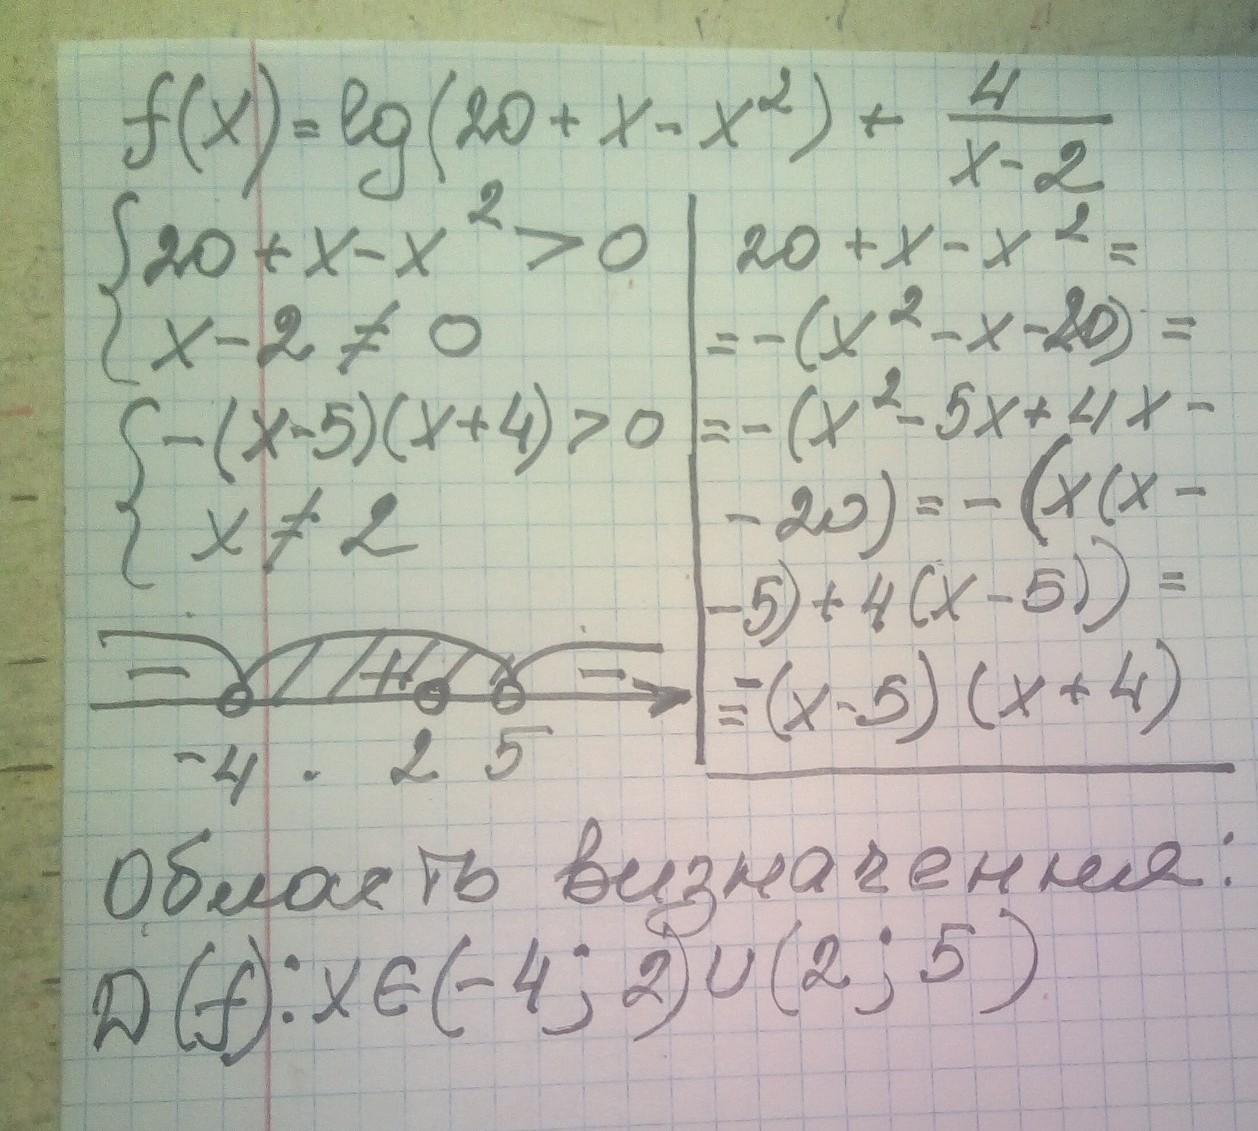 f(x) = lg(20 + x - x²) + 4/(x - 2)
{ 20 + x - x² > 0
x - 2 ≠ 0
{ -(x-5)(x+4) > 0
x ≠ 2
- + -
-4 . 2 5
20 + x - x² =
= -(x² - x - 20) =
= -(x² - 5x + 4x -
- 20) = - (x(x -
- 5) + 4(x - 5)) =
= -(x - 5) (x + 4)
Область визначення:
D(f): x ∈ (-4; 2) ∪ (2; 5)